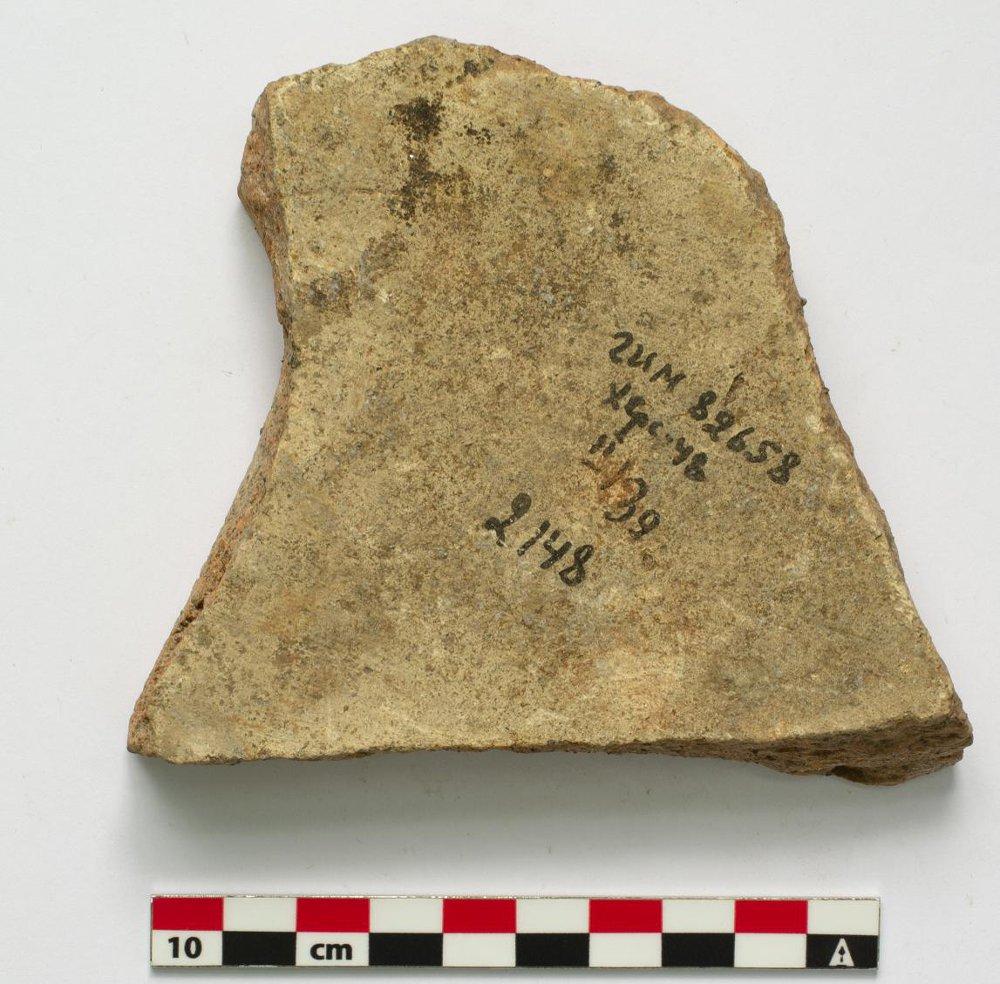 гим 82658
херс. 48
" 139
2148
10 cm